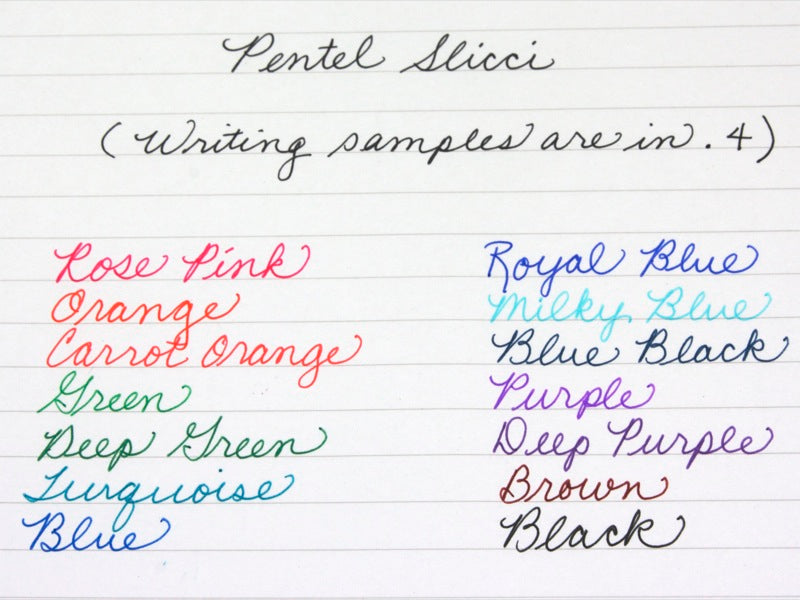 Pentel Slicci
(Writing samples are in .4)
Rose Pink
Orange
Carrot Orange
Green
Deep Green
Turquoise
Blue
Royal Blue
Milky Blue
Blue Black
Purple
Deep Purple
Brown
Black